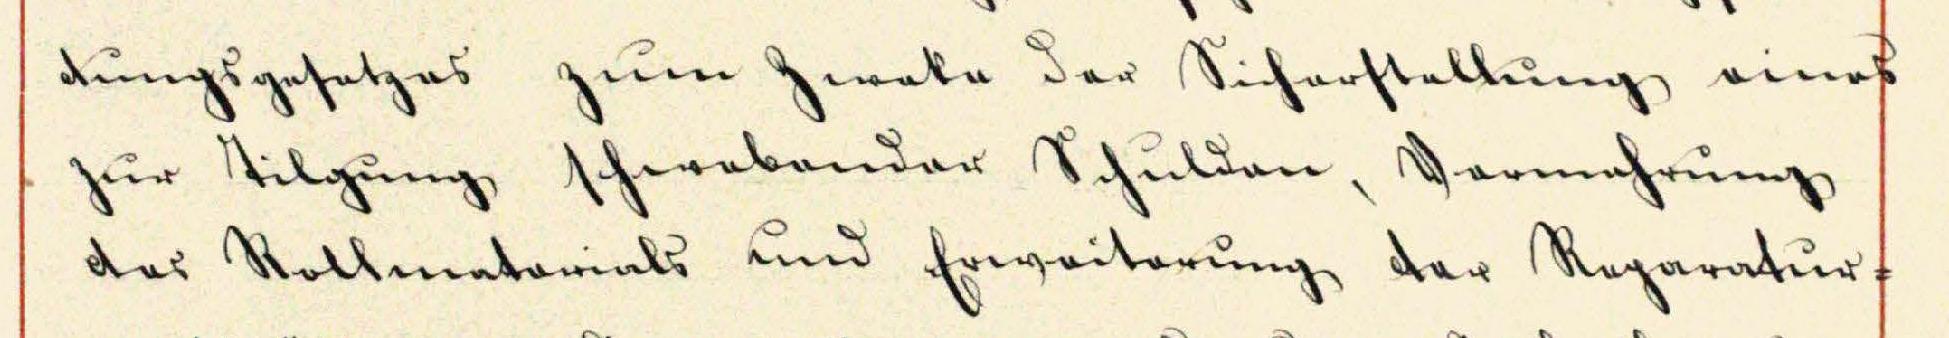 dungsgesetzes zum Zweke der Sicherstellung eines
zur Tilgung schwebender Schulden, Vermehrung
des Rollmaterials und Erweiterung der Reparatur=